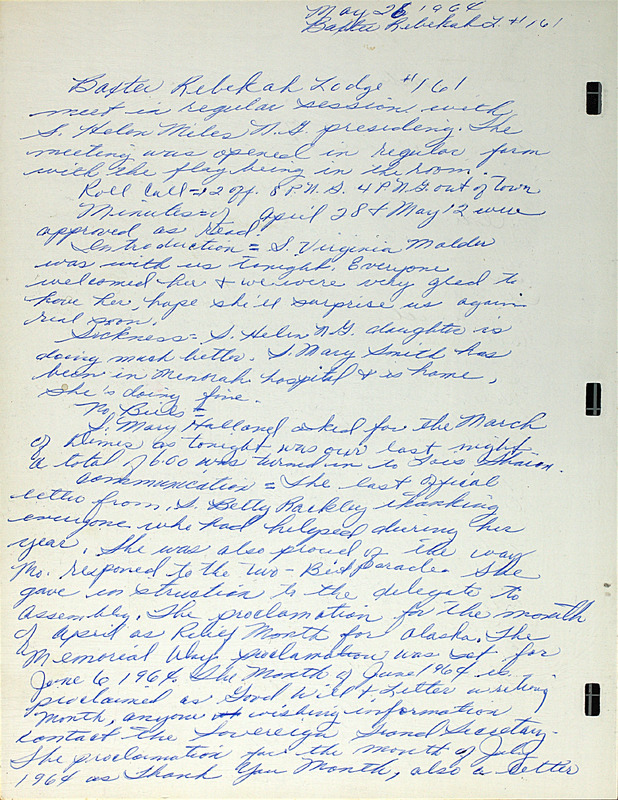 May 26 1964
Baxter Rebekah L. #161
Baxter Rebekah Lodge #161
meet in regular session with
S. Helen Miles N.G. presiding. The
meeting was opened in regular form
with the flag being in the room.
Roll Call = 12 off. 8 P.N.G. 4 P.N.G. out of town
Minutes of April 28 & May 12 were
approved as read.
Introduction = S. Virginia Malder
was with us tonight. Everyone
welcomed her & we were very glad to
have her, hope she'll surprise us again
real soon.
Sickness = S. Helen N.G. daughter is
doing much better. S. Mary Smith has
been in Menorah hospital & is home,
she's doing fine.
No Bills =
S. Mary Holland asked for the March
of Dimes as tonight was our last night
a total of 6.00 was turned in to Lois Sharon.
Communication = The last official
letter from S. Betty Rackley thanking
everyone who had helped during her
year. She was also proud of the way
Mo. responed to the Two-Bit parade. She
gave instruction to the delegate to
Assembly. The proclamation for the month
of April as Relief Month for Alaska. The
Memorial Day proclamation was set for
June 6, 1964. The Month of June 1964 is
proclaimed as Good Will & Letter writing
Month, anyone wishing information
contact the Sovereign Grand Secretary.
The proclamation for the month of July
1964 as Thank You Month, also a letter